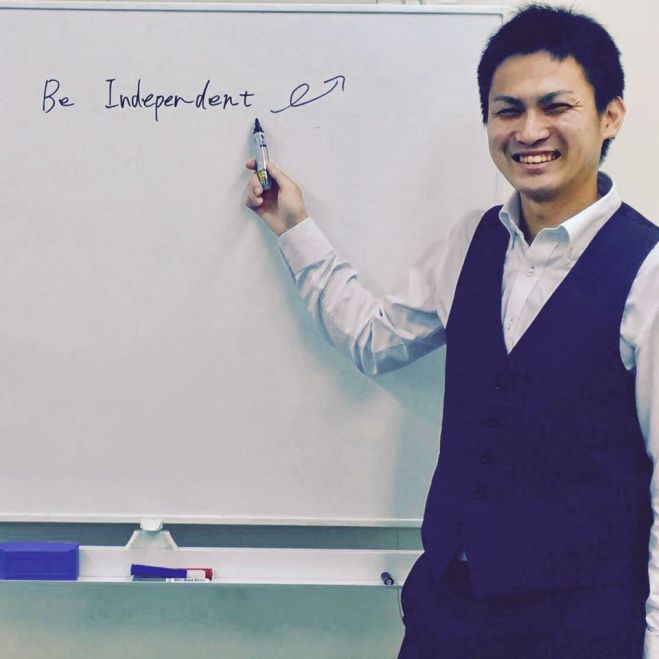 Be Independent